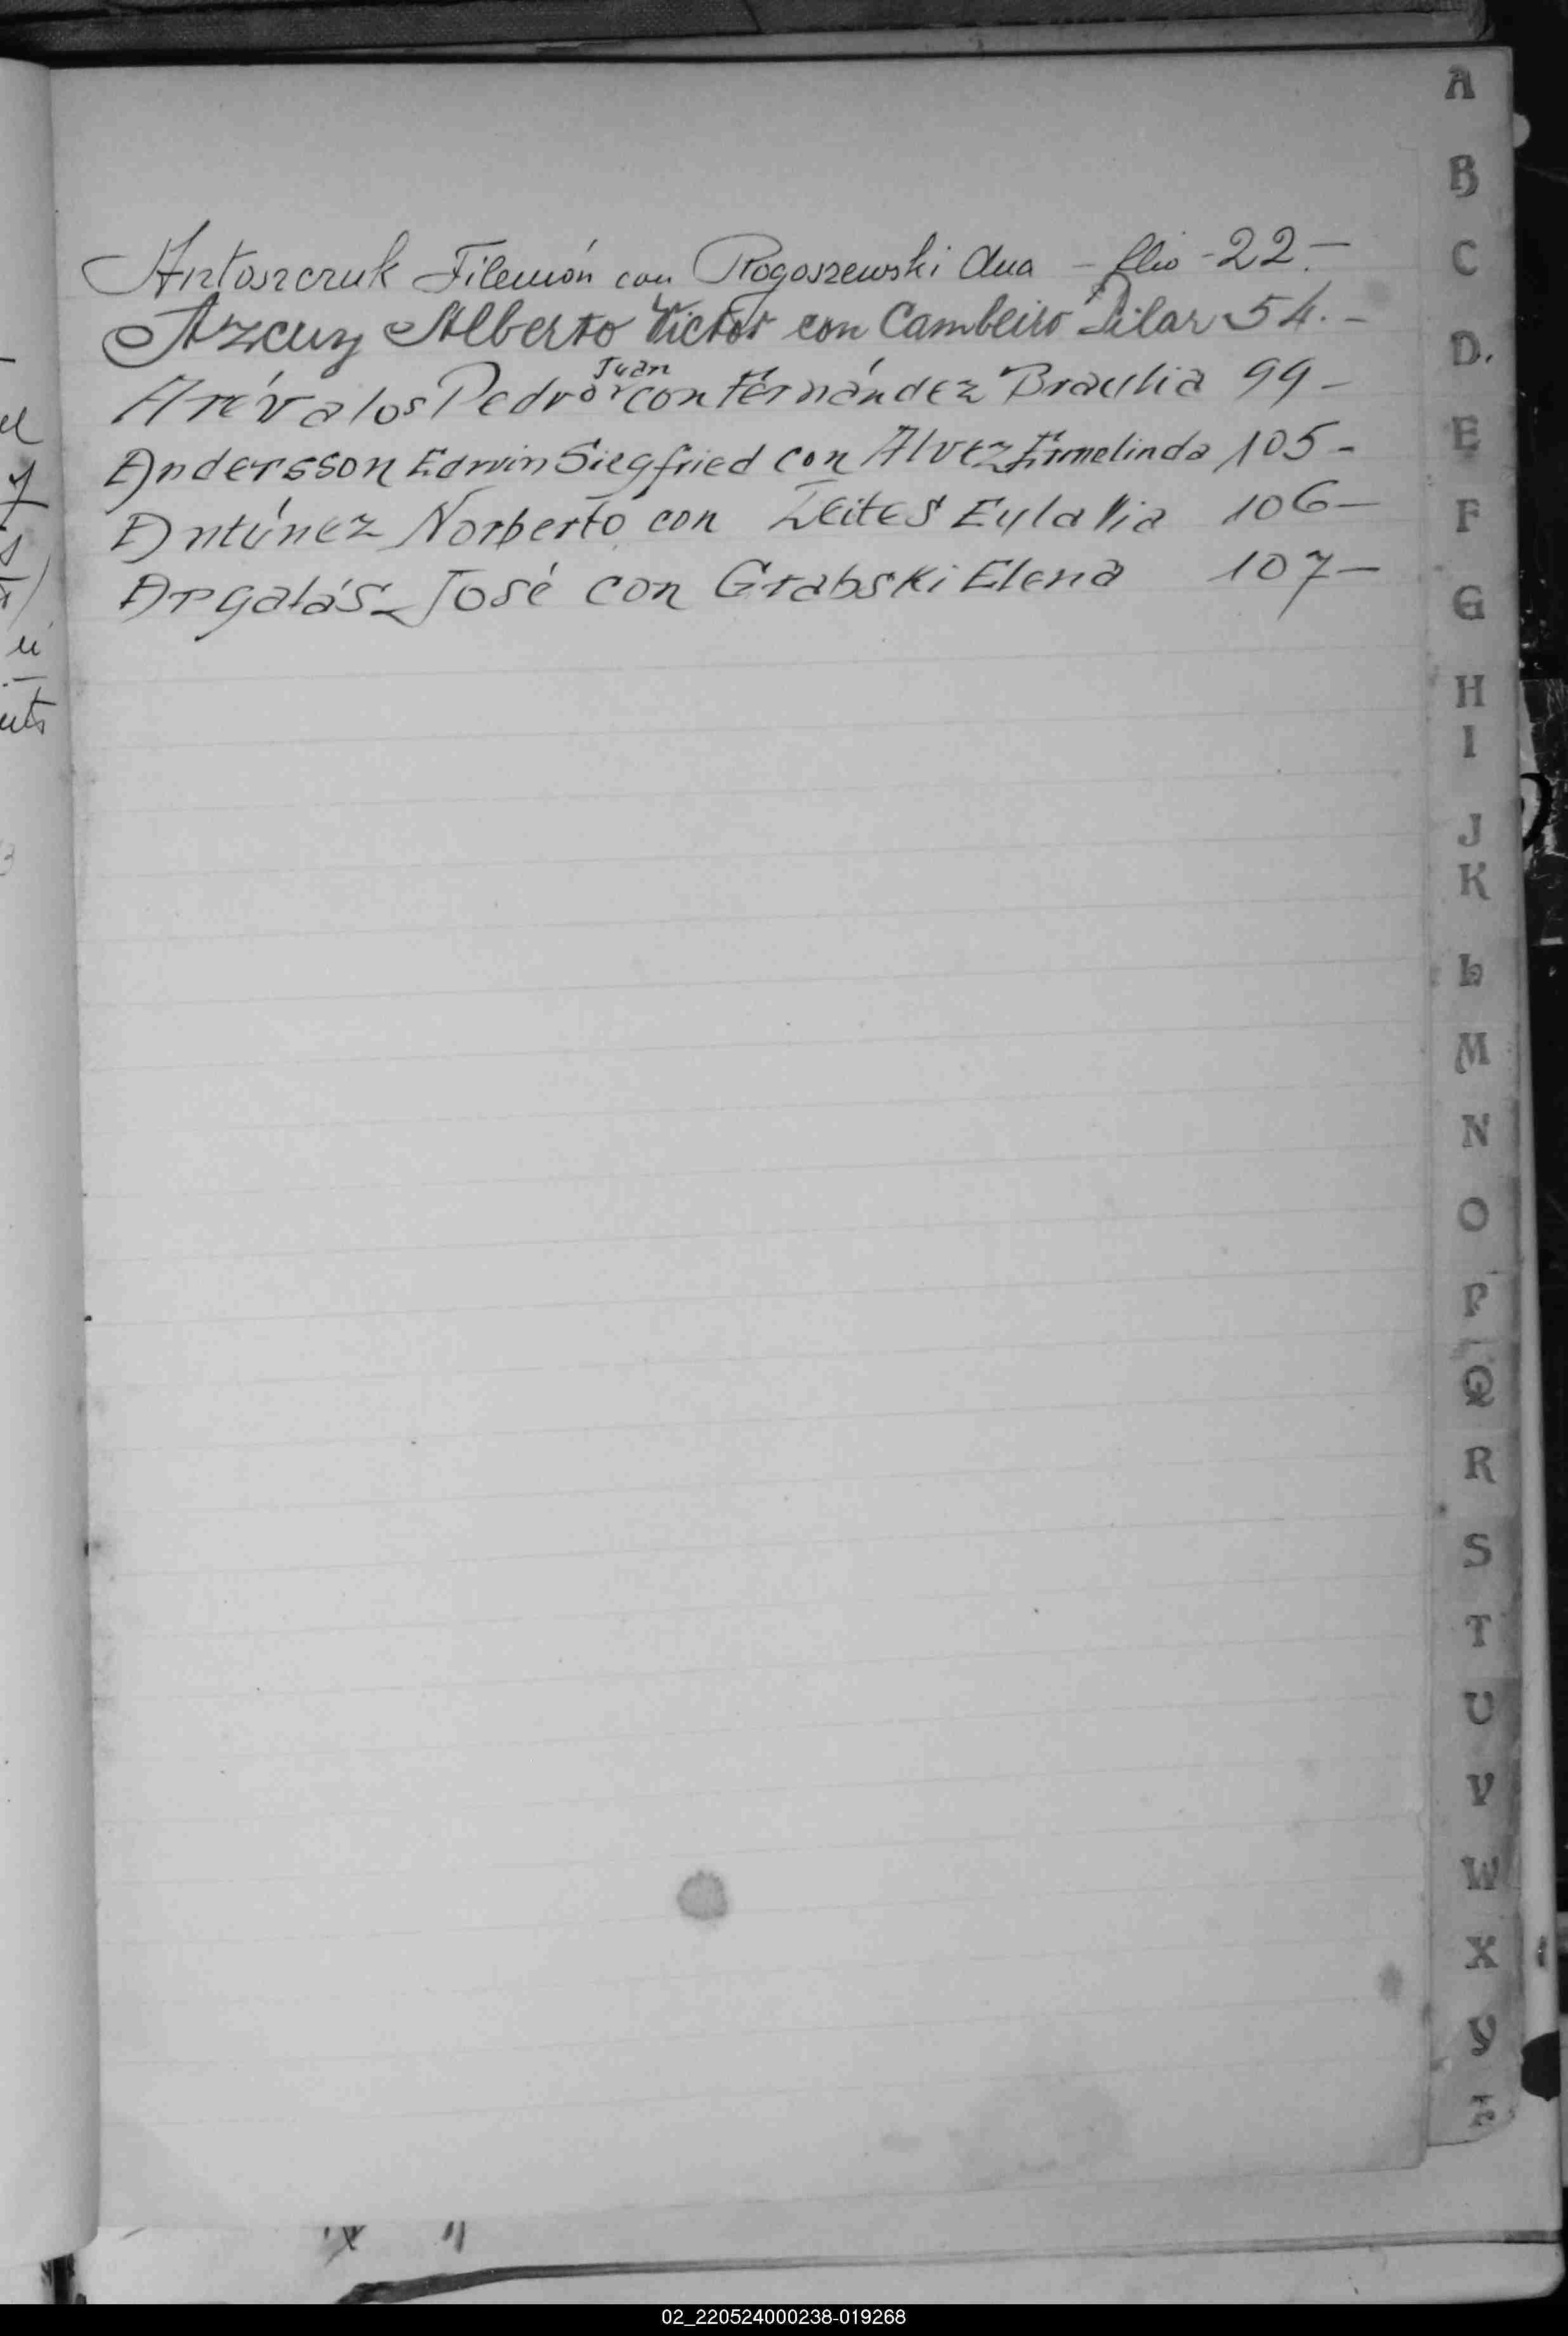 Antoszczuk Filemón con Rogoszewski Ana - flio - 22.-
Azcuy Alberto Victor con Cambeiro Pilar 54.-
Juan
Arévalos Pedro con Fernández Braulia 99-
Andersson Edwin Siegfried con Alvez Ermelinda 105-
Antúnez Norberto con Leites Eulalia 106-
Argalás José con Grabski Elena 107-
A
B
C
D.
E
F
G
H
I
J
K
L
M
N
O
P
Q
R
S
T
U
V
W
X
Y
Z
02_220524000238-019268